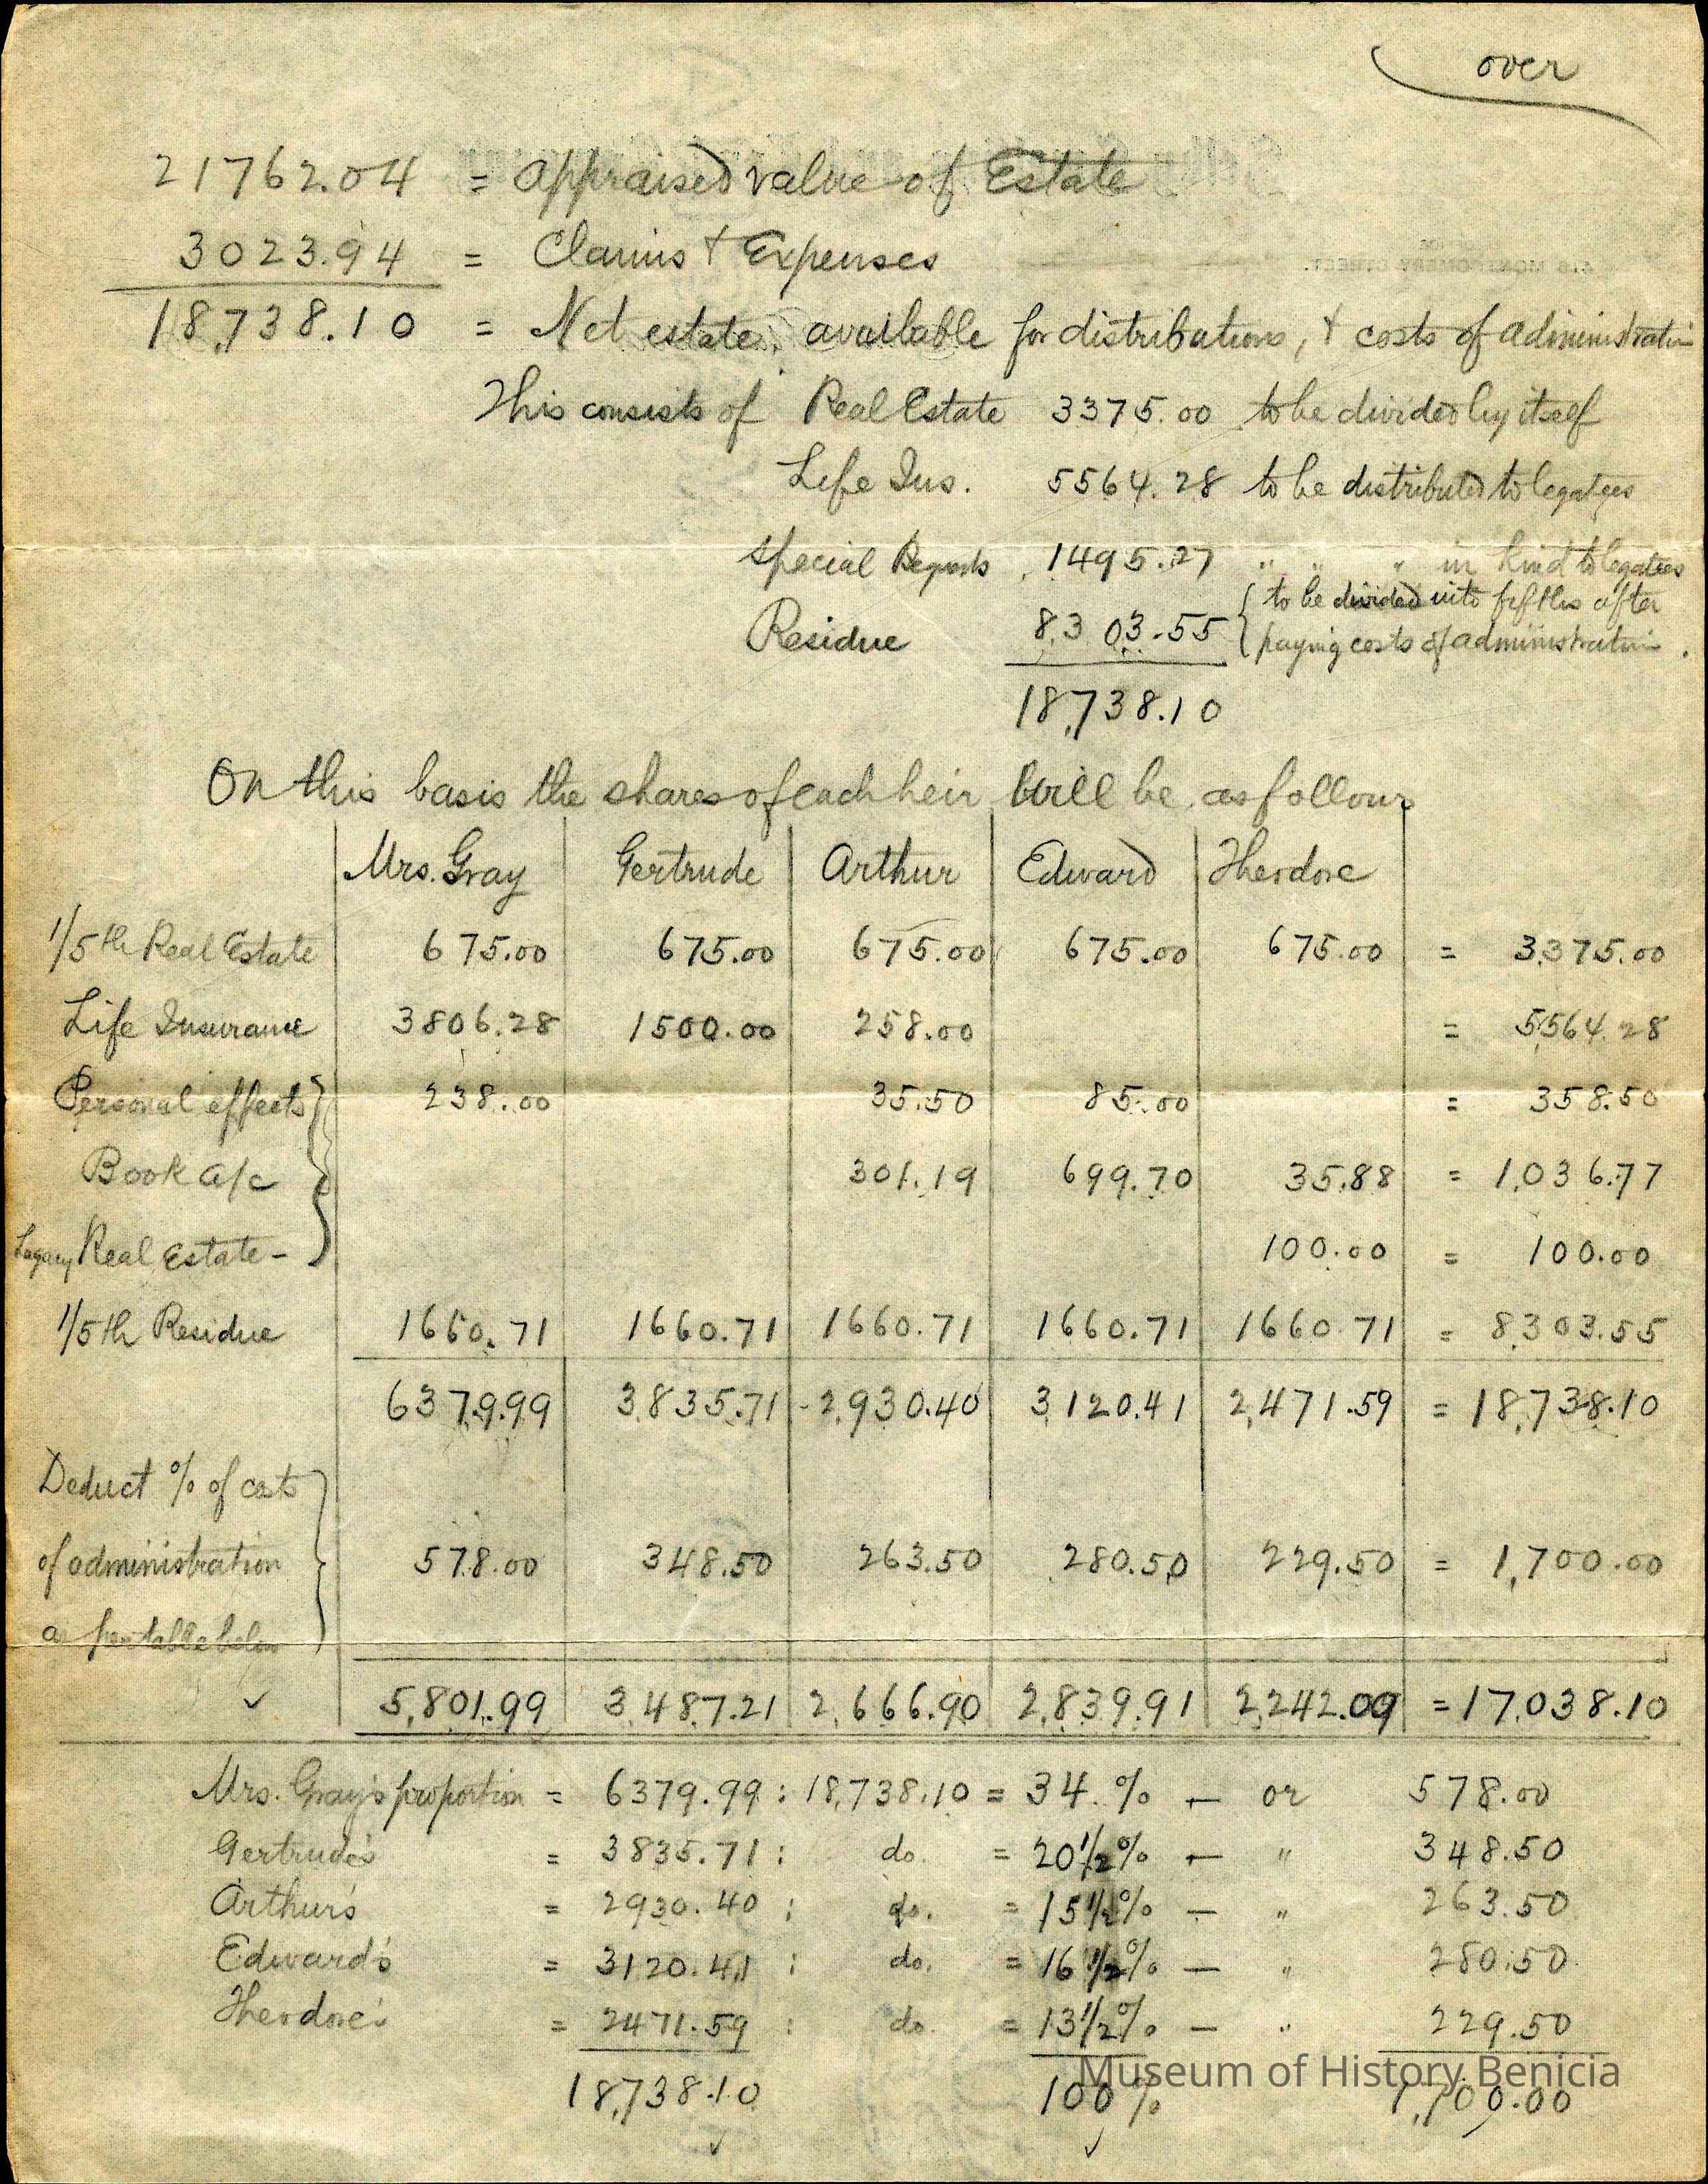 over
21762.04 = Appraised value of Estate
3023.94 = Claims & Expenses
18,738.10 = Net estate, available for distributions, & costs of administration
This consists of Real Estate 3375.00 to be divided by itself
Life Ins. 5564.28 to be distributed to legatees
Special Bequests 1495.27 " " " in kind to legatees
Residue 8,303.55 { to be divided into fifths after
paying costs of administration.
18,738.10
On this basis the shares of each heir will be as follows
Mrs. Gray Gertrude Arthur Edward Theodore
1/5th Real Estate 675.00 675.00 675.00 675.00 675.00 = 3,375.00
Life Insurance 3806.28 1500.00 258.00 = 5,564.28
Personal effects 238.00 35.50 85.00 = 358.50
Book a/c 301.19 699.70 35.88 = 1,036.77
Legacy Real Estate - 100.00 = 100.00
1/5th Residue 1660.71 1660.71 1660.71 1660.71 1660.71 = 8,303.55
6379.99 3,835.71 2,930.40 3,120.41 2,471.59 = 18,738.10
Deduct % of costs
of administration 578.00 348.50 263.50 280.50 229.50 = 1,700.00
as per table below
✓ 5,801.99 3,487.21 2,666.90 2,839.91 2,242.09 = 17,038.10
Mrs. Gray's proportion = 6379.99 : 18,738.10 = 34.% — or 578.00
Gertrude's = 3835.71 : do. = 20 1/2% — " 348.50
Arthur's = 2930.40 : do. = 15 1/2% — " 263.50
Edward's = 3120.41 : do. = 16 1/2% — " 280.50
Theodore's = 2471.59 : do. = 13 1/2% — " 229.50
18,738.10 100% 1,700.00
✓ ✓
Museum of History Benicia